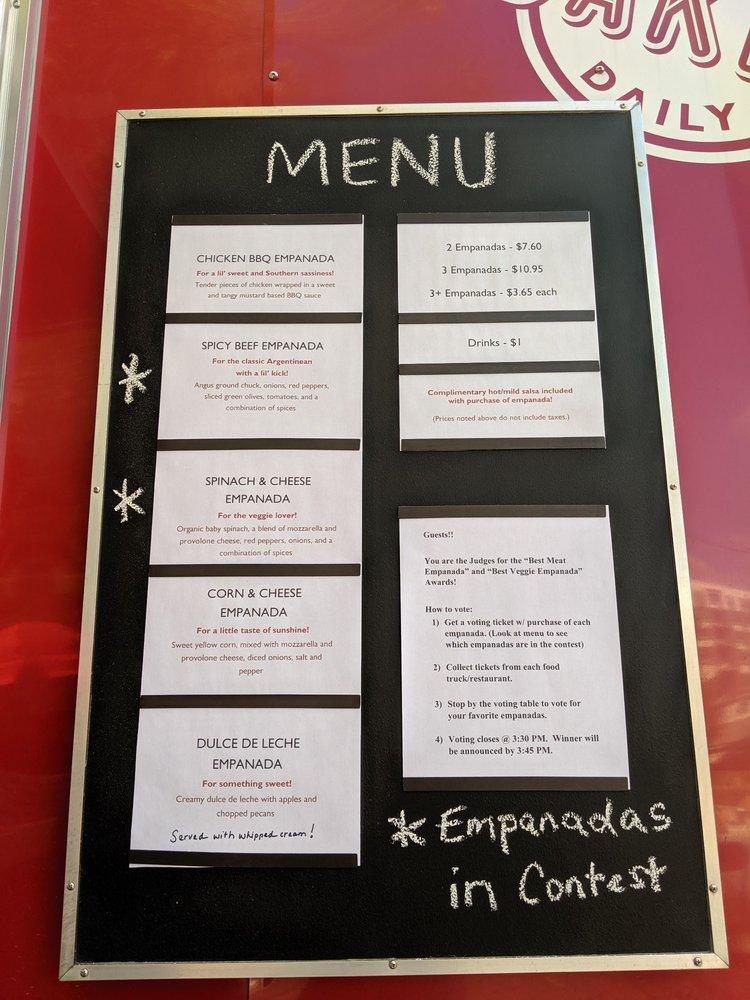 DAILY
MENU
CHICKEN BBQ EMPANADA
For a lil' sweet and Southern sassiness!
Tender pieces of chicken wrapped in a sweet
and tangy mustard based BBQ sauce
*
SPICY BEEF EMPANADA
For the classic Argentinean
with a lil' kick!
Angus ground chuck, onions, red peppers,
sliced green olives, tomatoes, and a
combination of spices
*
SPINACH & CHEESE
EMPANADA
For the veggie lover!
Organic baby spinach, a blend of mozzarella and
provolone cheese, red peppers, onions, and a
combination of spices
CORN & CHEESE
EMPANADA
For a little taste of sunshine!
Sweet yellow corn, mixed with mozzarella and
provolone cheese, diced onions, salt and
pepper
DULCE DE LECHE
EMPANADA
For something sweet!
Creamy dulce de leche with apples and
chopped pecans
Served with whipped cream!
2 Empanadas - $7.60
3 Empanadas - $10.95
3+ Empanadas - $3.65 each
Drinks - $1
Complimentary hot/mild salsa included
with purchase of empanada!
(Prices noted above do not include taxes.)
Guests!!
You are the Judges for the "Best Meat
Empanada" and "Best Veggie Empanada"
Awards!
How to vote:
1) Get a voting ticket w/ purchase of each
empanada. (Look at menu to see
which empanadas are in the contest)
2) Collect tickets from each food
truck/restaurant.
3) Stop by the voting table to vote for
your favorite empanadas.
4) Voting closes @ 3:30 PM. Winner will
be announced by 3:45 PM.
* Empanadas
in Contest